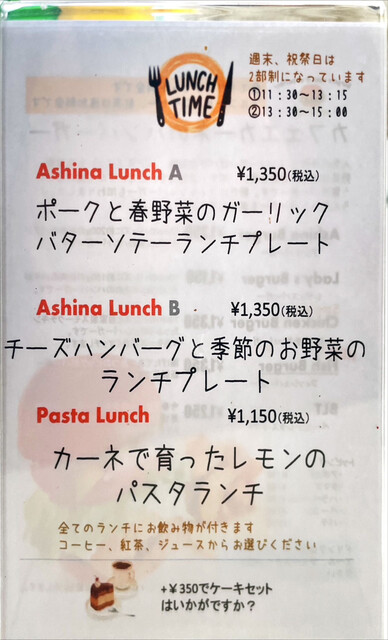 LUNCH
TIME
週末、祝祭日は
2部制になっています
①11：30～13：15
②13：30～15：00
Ashina Lunch A ¥1,350(税込)
ポークと春野菜のガーリック
バターソテーランチプレート
Ashina Lunch B ¥1,350(税込)
チーズハンバーグと季節のお野菜の
ランチプレート
Pasta Lunch ¥1,150(税込)
カーネで育ったレモンの
パスタランチ
全てのランチにお飲み物が付きます
コーヒー、紅茶、ジュースからお選びください
+¥350でケーキセット
はいかがですか？